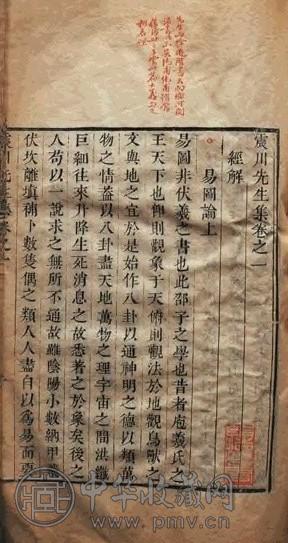 震川先生集卷之一
經解
易圖論上
易圖非伏羲之書也此邵子之學也昔者庖羲氏之
王天下也仰則觀象于天俯則觀法於地觀鳥獸之
文與地之宜於是始作八卦以通神明之德以類萬
物之情蓋以八卦盡天地萬物之理宇宙之間洪纖
巨細往來升降生死消息之故悉著之於象矣後之
人苟以一說求之無所不通故雖陰陽小數納甲飛
伏坎離填補卜數隻偶之類人人盡自以爲易而要
中华收藏网
www.pmv.cn